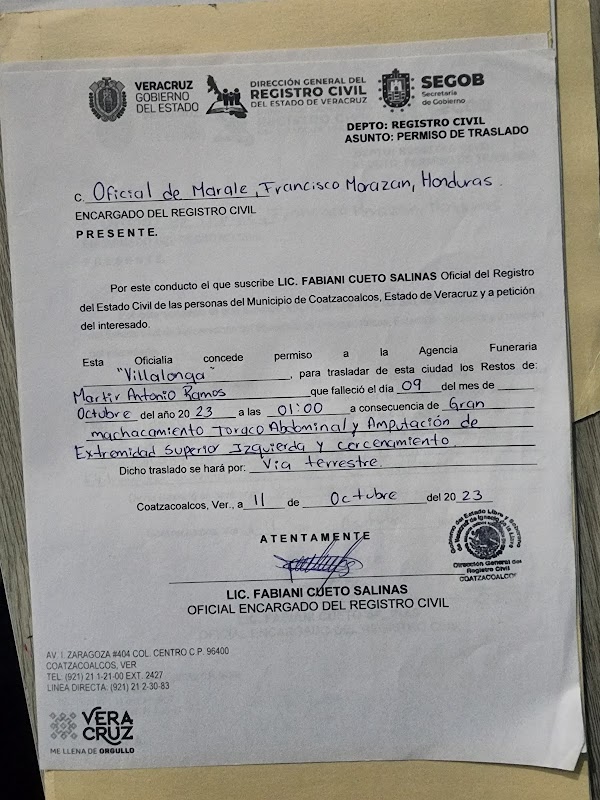 VERACRUZ
GOBIERNO
DEL ESTADO
DIRECCIÓN GENERAL DEL
REGISTRO CIVIL
DEL ESTADO DE VERACRUZ
SEGOB
Secretaría
de Gobierno
DEPTO: REGISTRO CIVIL
ASUNTO: PERMISO DE TRASLADO
C. Oficial de Marale, Francisco Morazan, Honduras.
ENCARGADO DEL REGISTRO CIVIL
PRESENTE.
Por este conducto el que suscribe LIC. FABIANI CUETO SALINAS Oficial del Registro
del Estado Civil de las personas del Municipio de Coatzacoalcos, Estado de Veracruz y a petición
del interesado.
Esta Oficialia concede permiso a la Agencia Funeraria
"Villalonga", para trasladar de esta ciudad los Restos de:
Martir Antonio Ramos que falleció el día 09 del mes de
Octubre del año 2023 a las 01:00 a consecuencia de Gran
machacamiento Toraco Abdominal y Amputación de
Extremidad Superior Izquierda y cercenamiento.
Dicho traslado se hará por: Via terrestre.
Coatzacoalcos, Ver., a 11 de Octubre del 2023
ATENTAMENTE
LIC. FABIANI CUETO SALINAS
OFICIAL ENCARGADO DEL REGISTRO CIVIL
Dirección General del
Registro Civil
COATZACOALCOS
AV. I. ZARAGOZA #404 COL. CENTRO C.P. 96400
COATZACOALCOS, VER
TEL: (921) 21 1-21-00 EXT. 2427
LINEA DIRECTA: (921) 21 2-30-83
VERA
CRUZ
ME LLENA DE ORGULLO